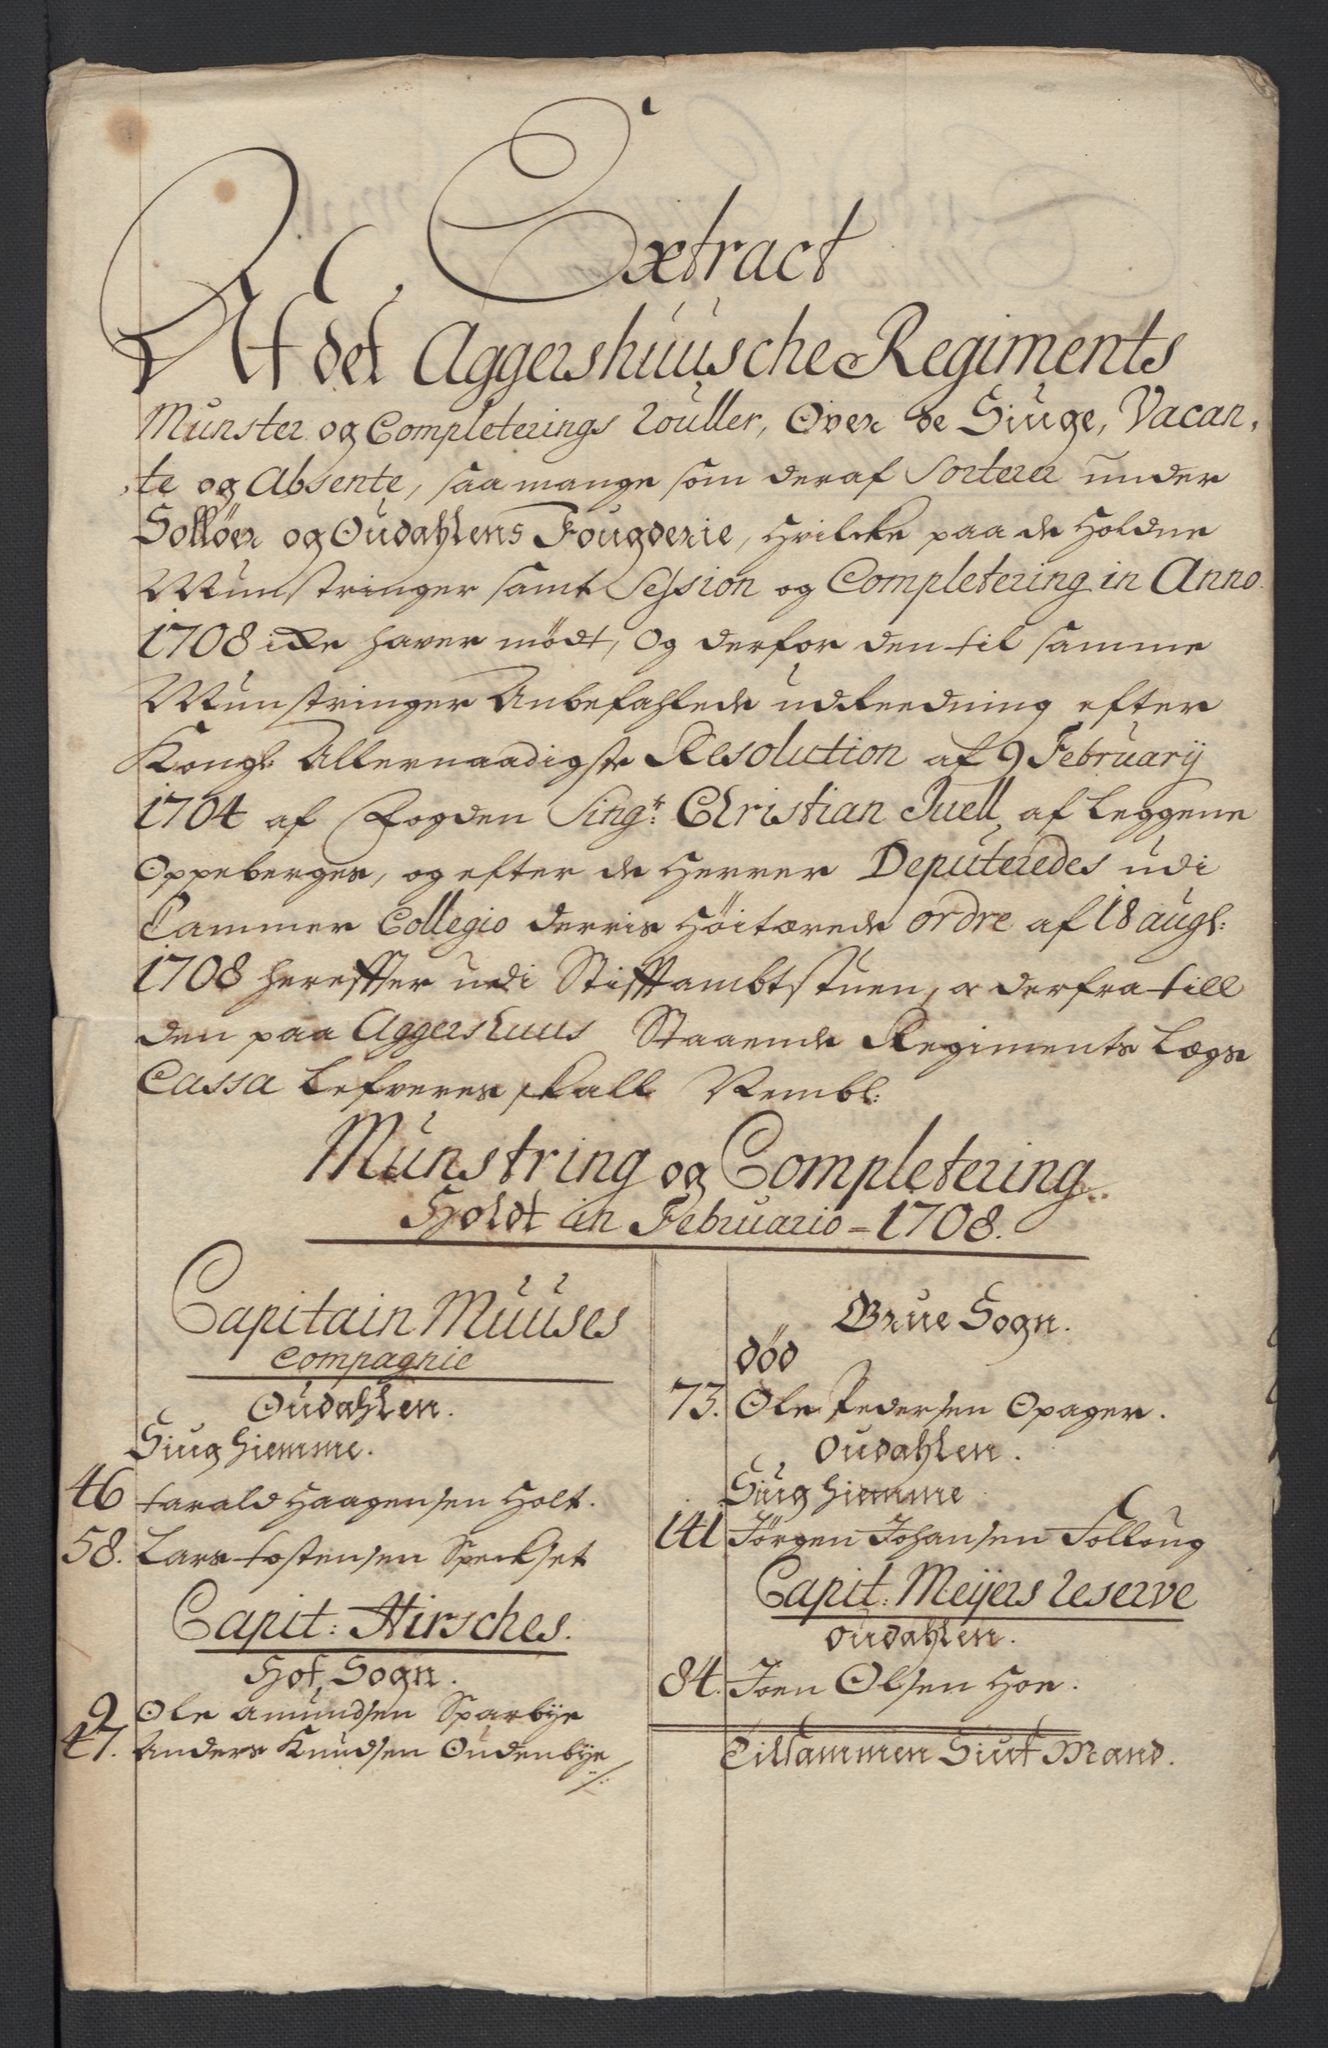 Extract
Af det Aggershuusche Regiments
Munster og Completerings Rouller, Over de Siuge, Vacan,
,te og Absente, saa mange som deraf Sorterer under
Solløer og Oudahlens Fougderie, hvilcke paa de holdne
Munstringer samt Session og Completering in Anno
1708 icke hafver mødt, og derfor den til samme
Munstringer Anbefahlede udReedning efter
Kongl: Allernaadigste Resolution af 9 Februarij
1704 af Fogden Sing:r Christian Juell, af Leggene
Oppeberges, og efter de Herrer Deputeredes udi
Cammer Collegio derris Høitærede ordre af 18 augl:
1708 hereffter udi Stifftambtstuen, og derfra till
den paa Aggershuus Staaende Regiments Lægs
Cassa Lefveres skall Nembl:
Munstring og Completering
Holdt in Februario = 1708.
Capitain Muuses
Compagnie
Oudahlen.
Siug hiemme.
46 Tarald Haagensen Holt.
58. Lars Tostensen Speckset
Capit: Hirsches.
Hof Sogn.
9 Ole Amundsen Sparbye
47. Anders Knudsen Oudenbye
Grue Sogn.
død
73. Ole Pedersen Opager.
Oudahlen.
Siug hiemme
141 Jørgen Johansen Solloug
Capit: Meijers Reserve
Oudahlen.
84. Joen Olsen Hoe.
Tilsammen Siuf Mand.